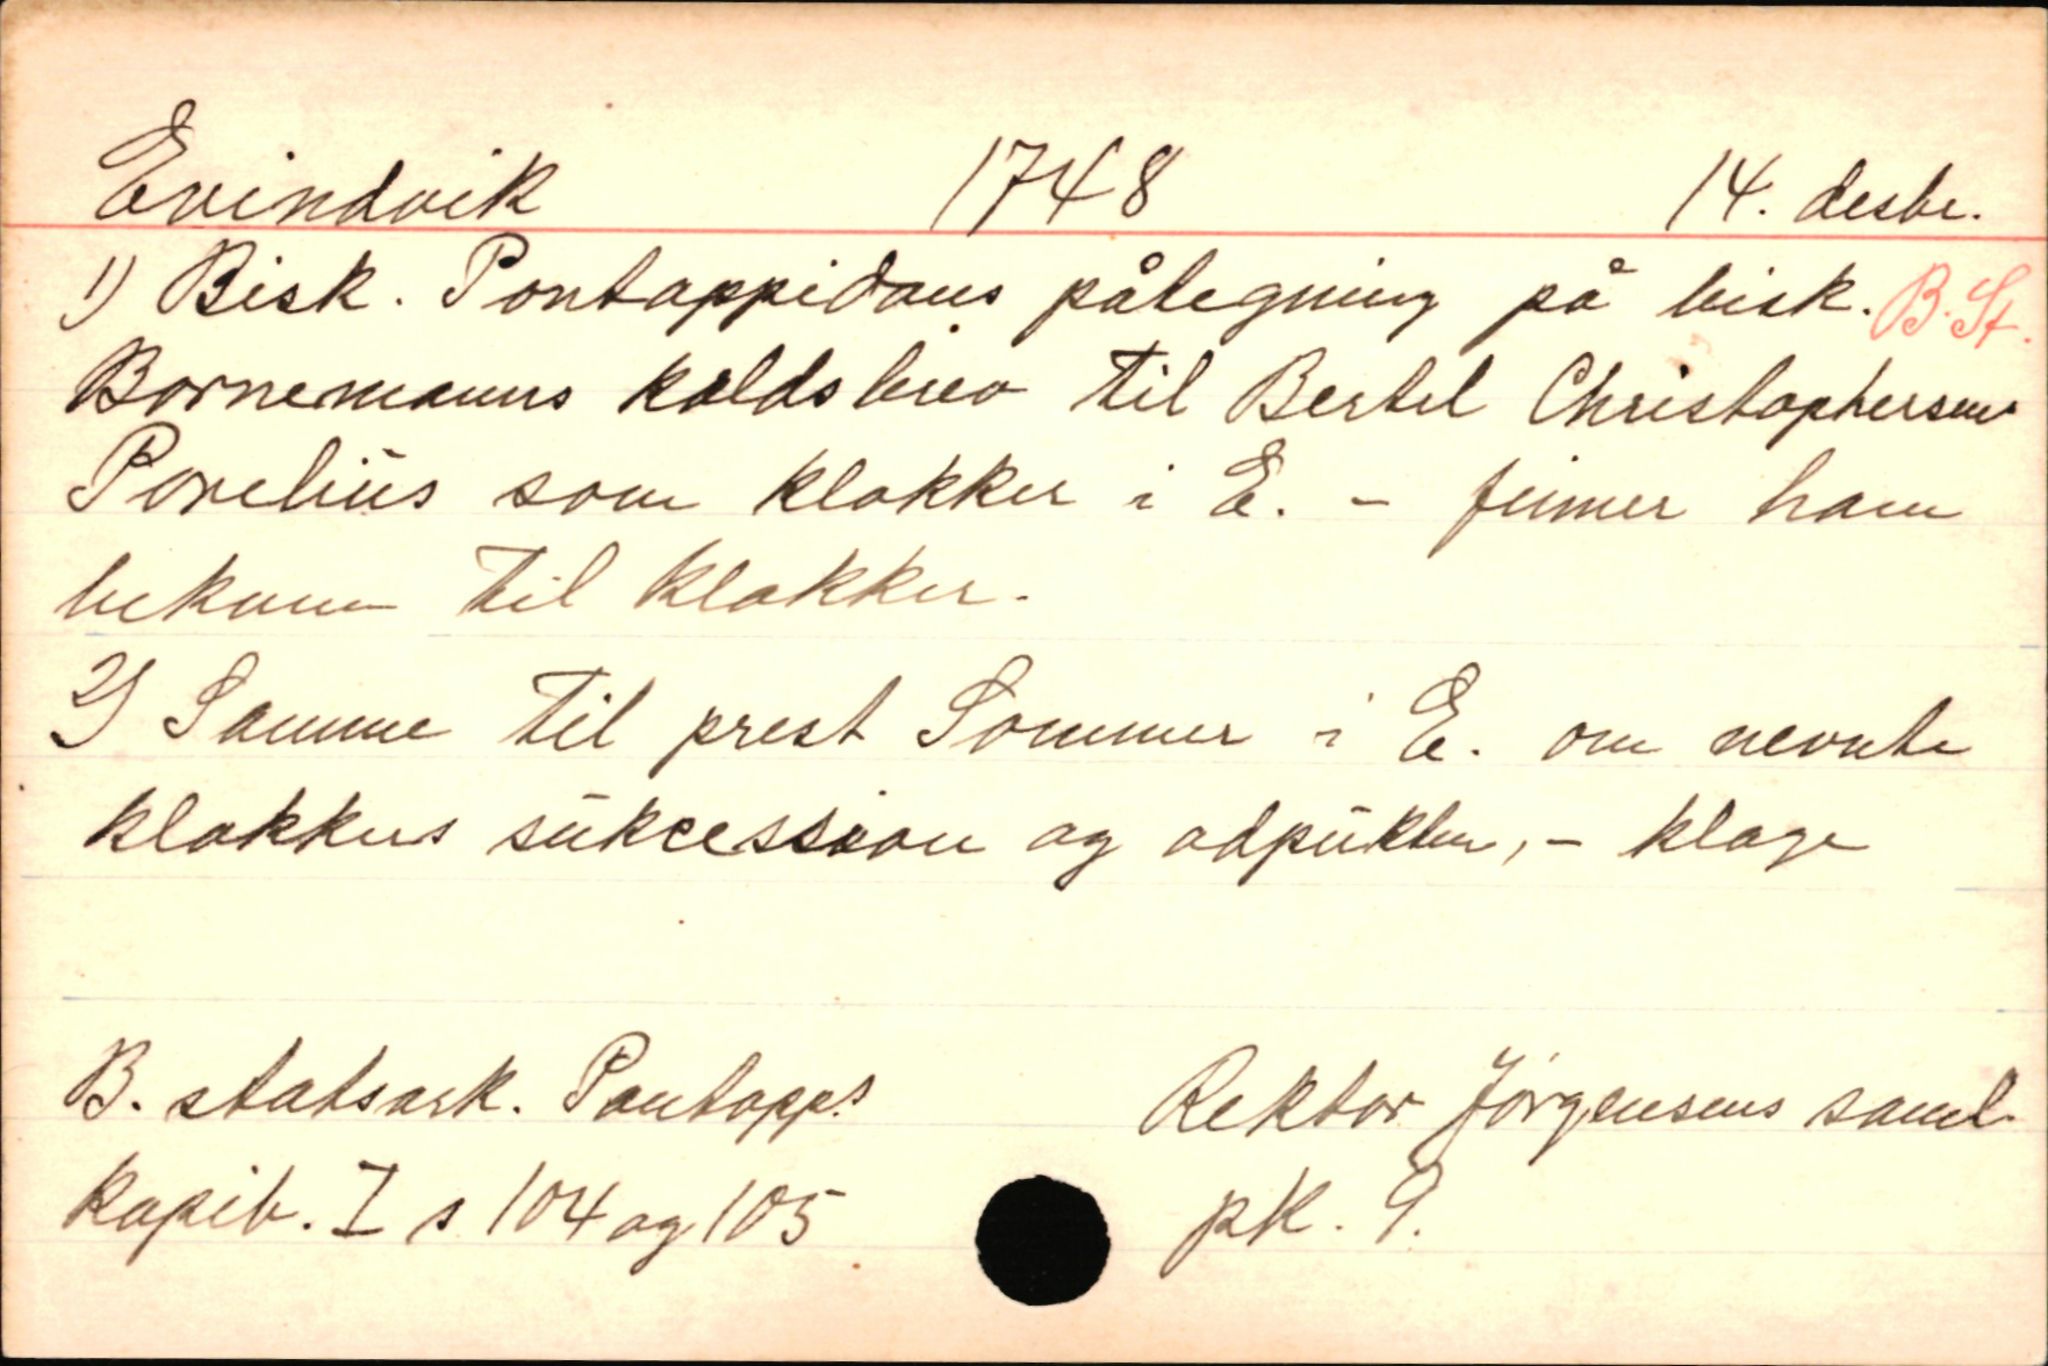 Evindvik 1748 14. desbr.
1) Bisk. Pontoppidans pålegning på bisk. B. St.
Bornemanns kaldsbrev til Bertel Christophersen
Porelius som klokker i E. - finner ham
bekvem til klokker.
2) Samme til prest Sommer i E. om nevnte
klokkers suksession og adpukter, - klage
B. statsark. Pontopp.s Rektor Jørgensens saml.
kopib. I s 104 og 105 pk. 9.